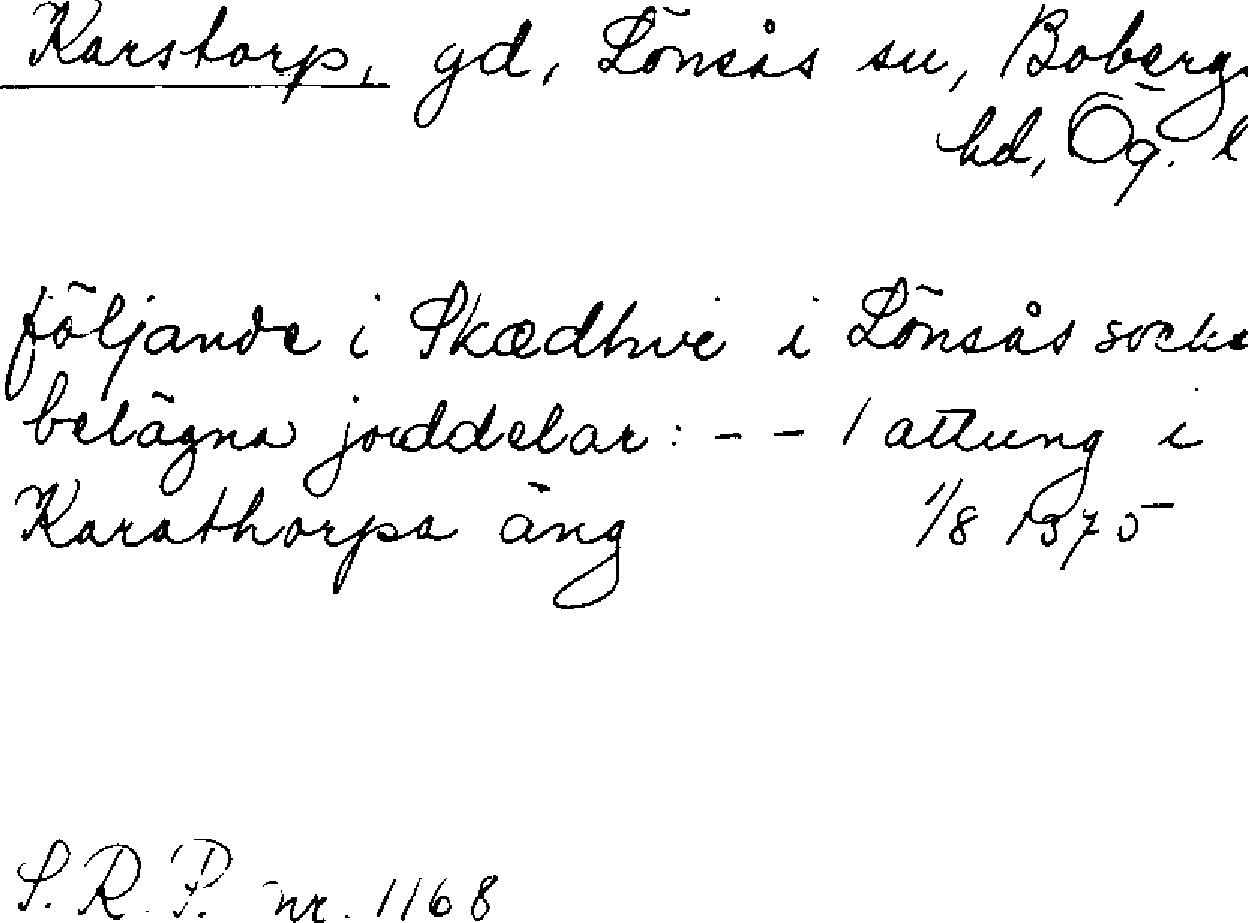 Karstorp, gd, Lönsås sn, Bobergs
hd, Ög. l
följande i Skædhwi i Lönsås socke
belägna jorddelar: - - 1 attung i
Karathorpa äng 1/8 1375
S. R. P. nr. 1168